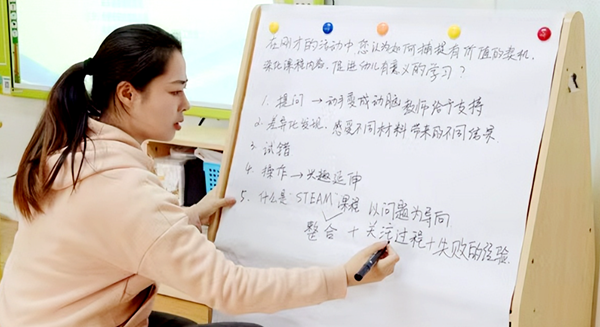 在刚才的活动中您认为如何捕捉有价值的契机，
深化课程内容，促进幼儿有意义的学习？
1. 提问 → 动手变成动脑 教师给予支持
2. 差异化发现、感受不同材料带来的不同结果.
3 试错
4. 操作 → 兴趣延伸
5、什么是"STEAM"课程 以问题为导向
整合 + 关注过程+失败的经验.